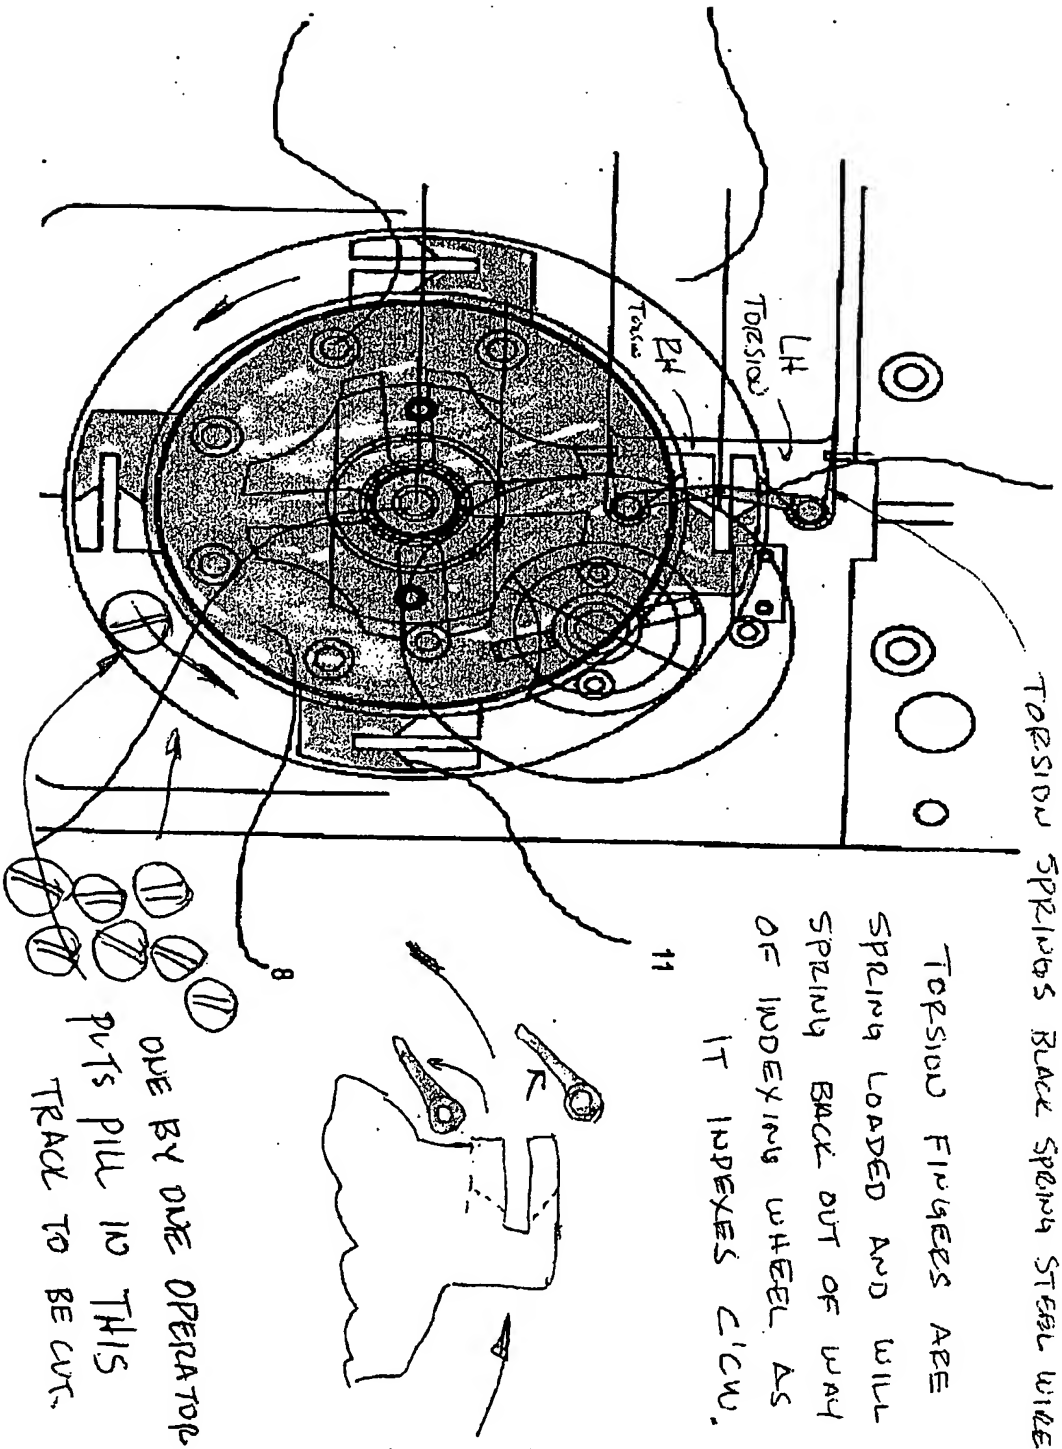 TORSION SPRINGS BLACK SPRING STEEL WIRE
TORSION FINGERS ARE
SPRING LOADED AND WILL
SPRING BACK OUT OF WAY
OF INDEXING WHEEL AS
IT INDEXES C'CW.
LH
TORSION
RH
11
8
ONE BY ONE OPERATOR
PUTS PILL IN THIS
TRACK TO BE CUT.